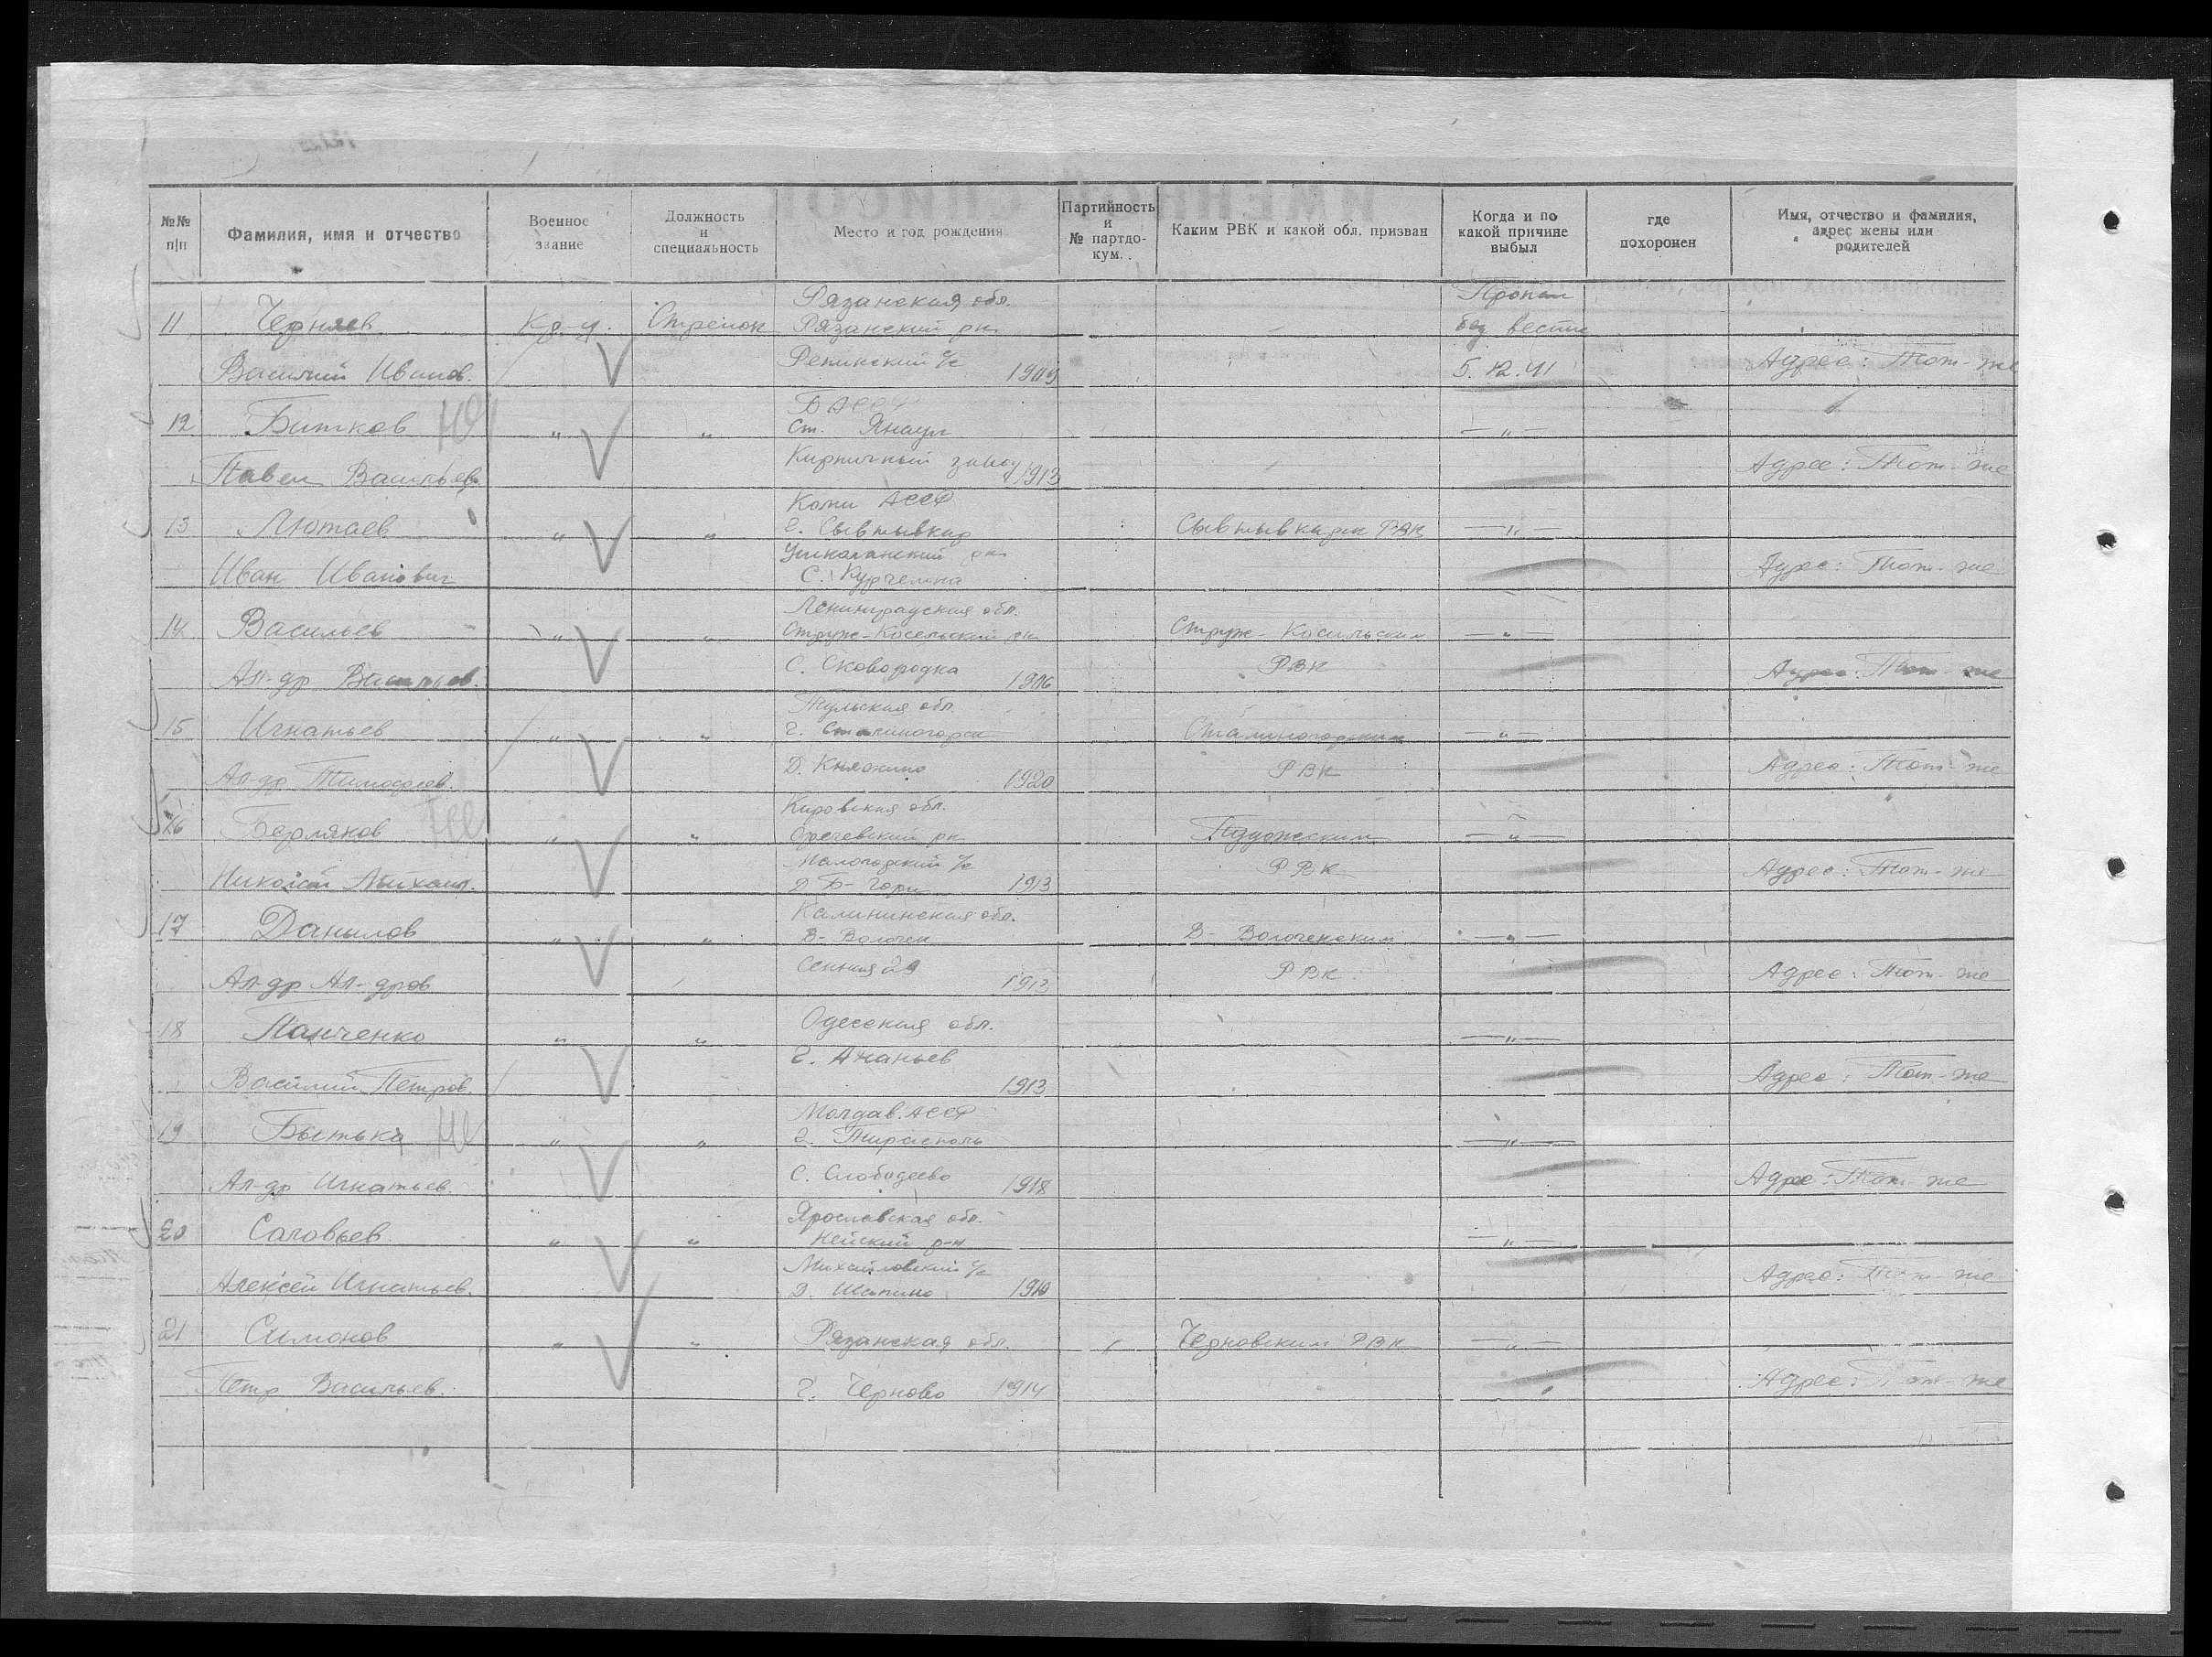 №№ п|п
Фамилия, имя и отчество
Военное звание
Должность и специальность
Место и год рождения
Партийность и № партдо-кум.
Каким РВК и какой обл. призван
Когда и по какой причине выбыл
где похоронен
Имя, отчество и фамилия, адрес жены или родителей
Рязанская обл. Пропал
11 Черняев Кр-ц. Стрелок Рязанский рн без вести
Василий Иванов. с/с 1909 5.12.41 Адрес: Тот-же
БАССР
12 Битков " " ст. Янаул — " —
Павел Васильев Кирпичный завод 1913 Адрес: Тот-же
Коми АССР
13 Лютаев " " г. Сывтывкар РВК — " —
Иван Иванович рн Адрес: Тот-же
С.
Ленинградская обл.
14 Васильев " " рн — " —
Ал-др Васильев. С. Сковородка 1906 РВК Адрес: Тот-же
Тульская обл.
15 Игнатьев " " г. Сталиногорск — " —
Ал-др Тимофеев. Д. Княжино 1920 РВК Адрес: Тот-же
Кировская обл.
16 Берляков " " рн Пудожским — " —
Николай Михаил. с/с РВК Адрес: Тот-же
1913
Калининская обл.
17 Данилов " " В-Волочек В-Волоченским — " —
Ал-др Ал-дров Сенная 29 1913 РВК Адрес: Тот-же
Одесская обл.
18 Панченко " " — " —
г. Ананьев
Василий Петров. 1913 Адрес: Тот-же
Молдав. АССР
19 Бытька " " г. Тирасполь — " —
Ал-др Игнатьев. С. Слободеево 1918 Адрес: Тот-же
Ярославская обл.
20 Соловьев " " Нейский р-н — " —
Михайловский с/с
Алексей Игнатьев. Д. Шапино 1910 Адрес: Тот-же
21 Симонов " " Рязанская обл. Черновским РВК — " —
Петр Васильев. г. Черново 1914 Адрес: Тот-же